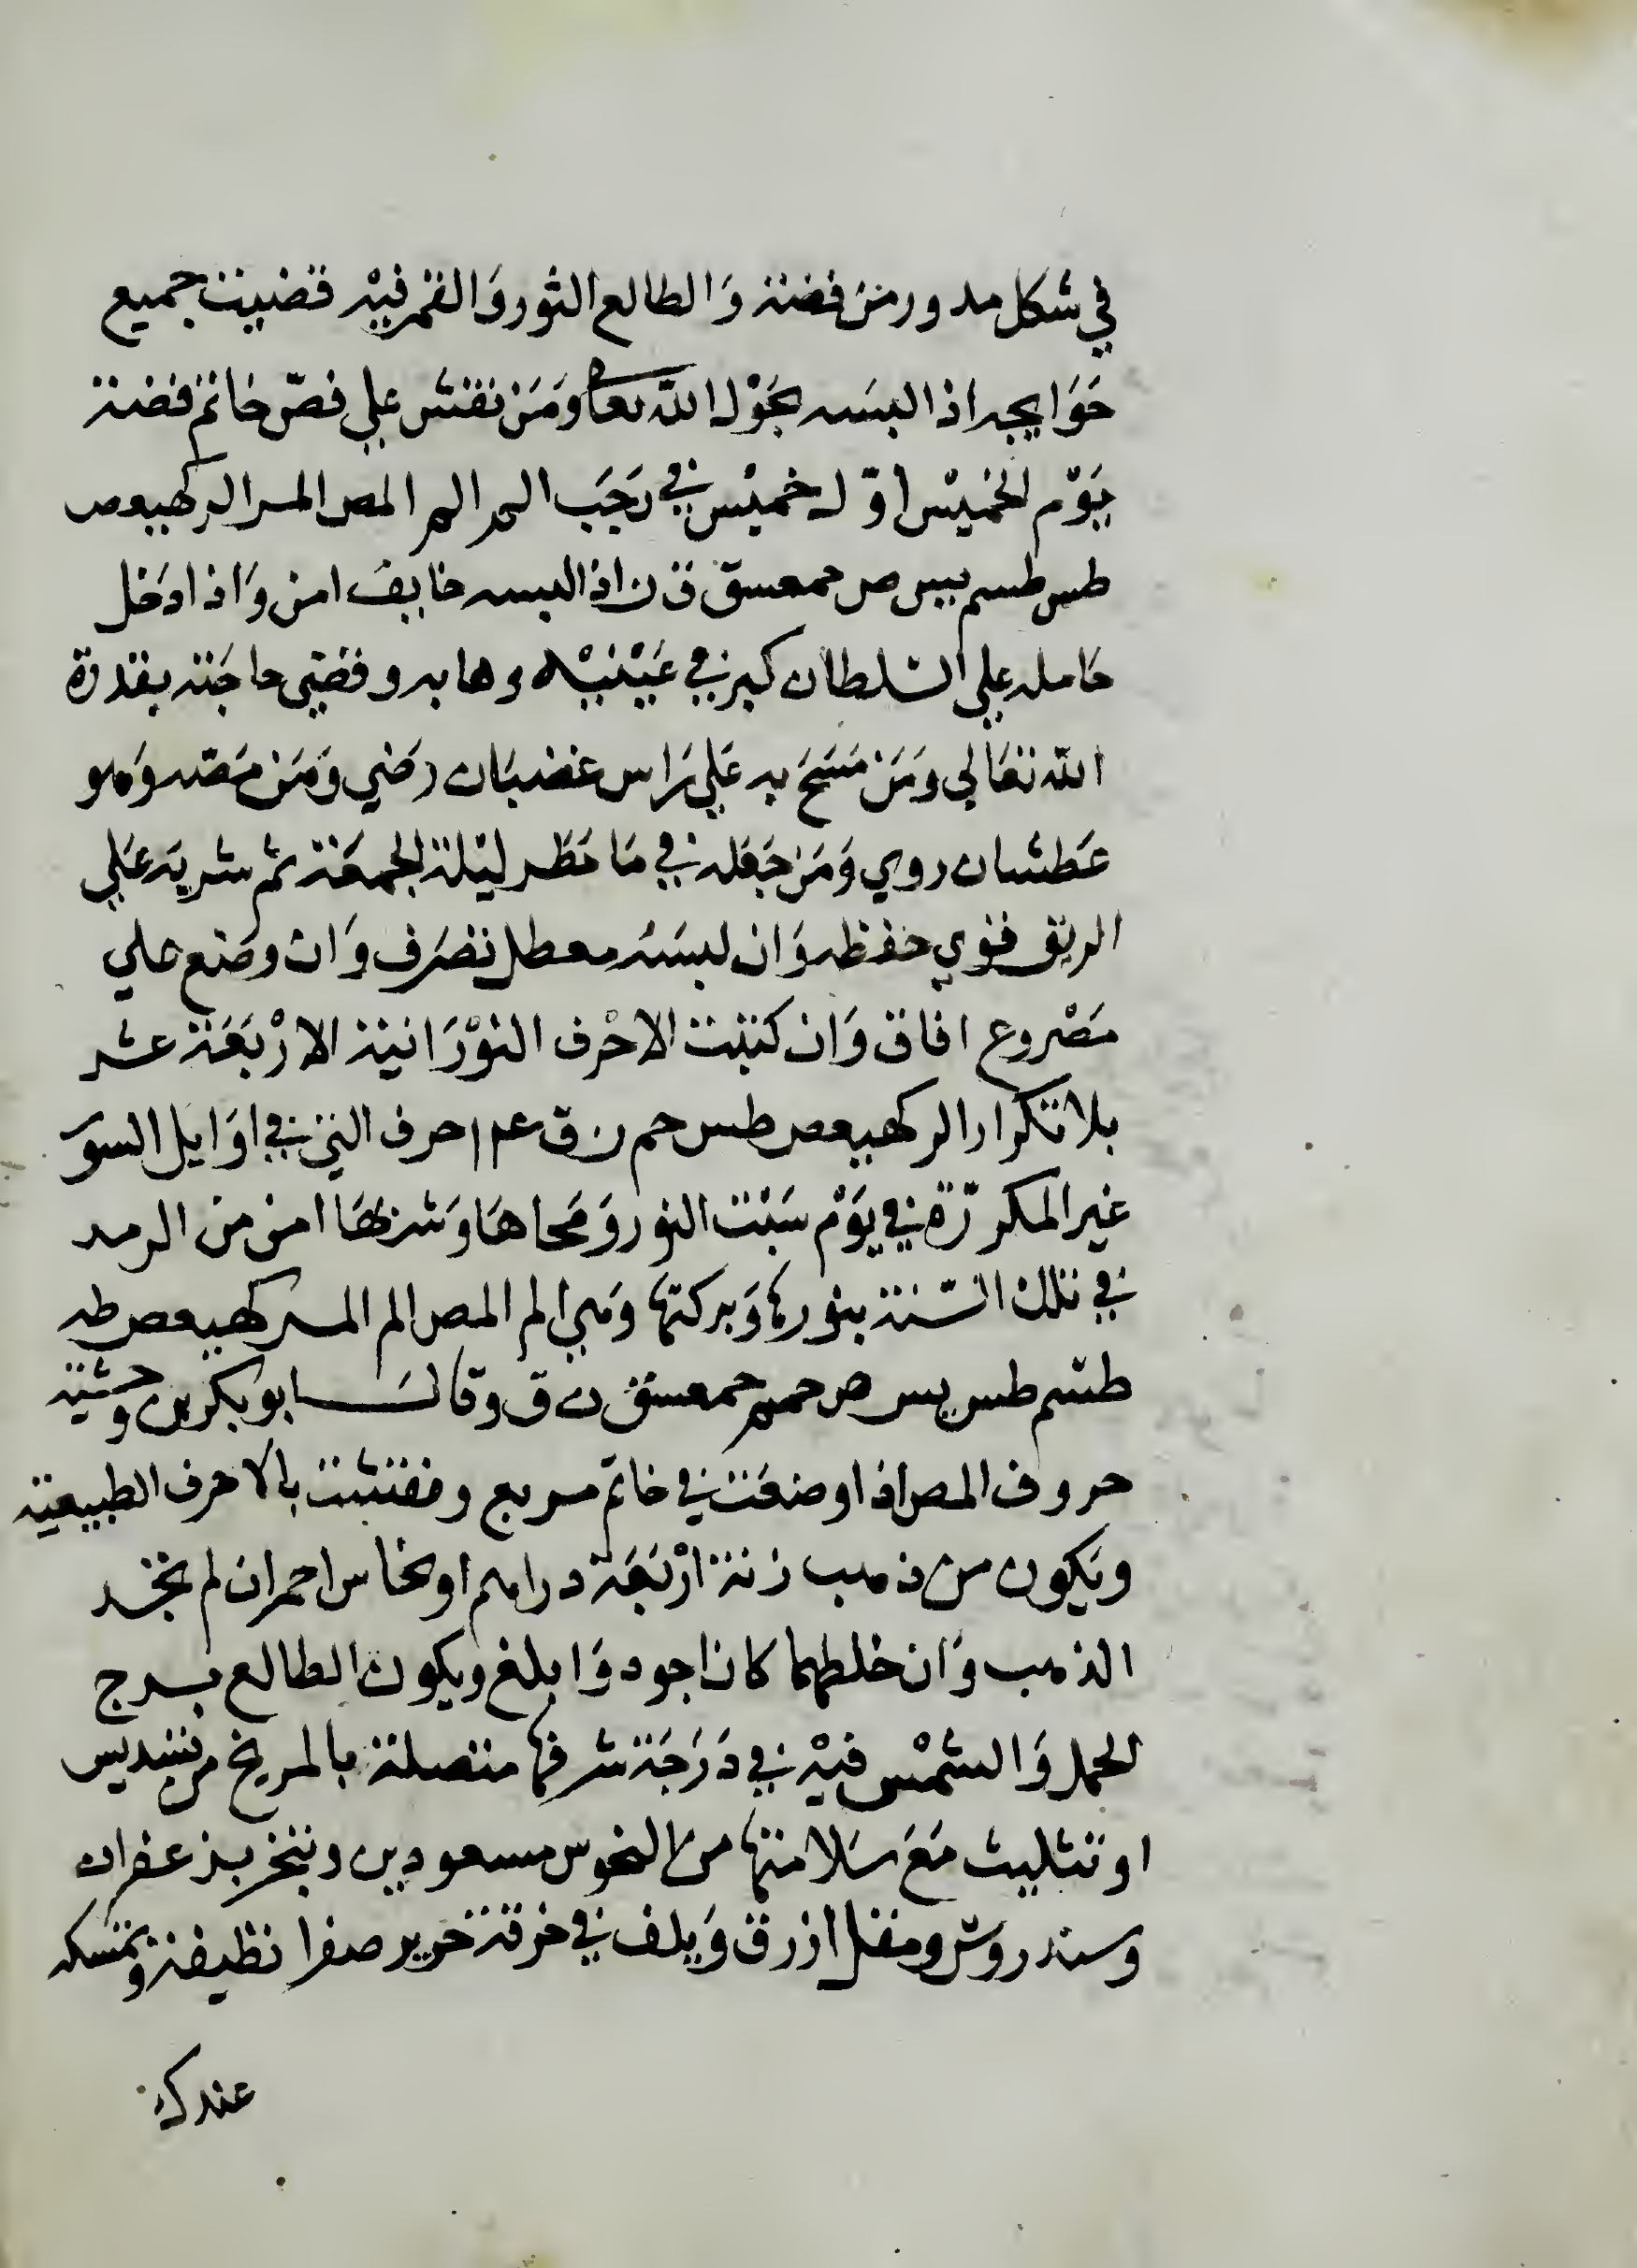 في شكل مدور من فضة وَالطالع الثور وَالقمر فيْه قضيت جميع
حَوَايجه اذا لبسَه بحَوْل الله تعا وَمَن نقش علي فصّ خاتم فضة
يَوْم الخميْس اوّل خميْس في رَجَب الم الم المص المر الر كهيعص
طس طسم يس ص حمعسق ق ن اذا لبسه خايف امن وَاذا دَخل
حَامله علي السلطان كبر في عَيْنيْه وهابه وقضي حاجَته بقدرة
الله تعَالي وَمَن مَسَحَ به عَلي رَاس غضبَان رضي وَمَن مَصّه وَهو
عَطشان روي وَمَن جَعَله في مَا مَطَر ليْلة الجمعَة ثم شربَه عَلي
الريق قوي حفظه وَان لبسَه معطل تصَرف وَان وضع علي
مَصْروع افاق وَان كتبت الاحْرف النوْرَانية الارْبَعَة عشر
بلا تكرار الر كهيعص طس حم ن ق عم احرف التي في اوَايل السوَر
غير المكررّة في يَوْم سَبْت النور وَمَحاهَا وَشربهَا امن من الرمد
في تلك السّنة بنورها وَبركتها وَهي الم المص الم المر كهيعص طه
طسم طس يس ص حم حمعسق ن ق وقال ابو بكر بن وحشية
حروف المص اذا وضعَت في خاتم مربع ونقشت بالاحرف الطبيعية
ويَكون من ذهب زنة ارْبَعَة دراهم او نحاس احمر ان لم تجد
الذهب وَان خلطهما كان اجود وَابلغ ويكون الطالع برج
الحمل وَالشمْس فيْه في دَرَجَة شرفها متصلة بالمريخ من تسديس
او تثليث مَعَ سَلامتها من النحوس مسعودين وتبخر بزعفران
وسندروس ومقل ازرق وَيلف في خرقة حَرير صفرا نظيفة وتمسكه
عندك